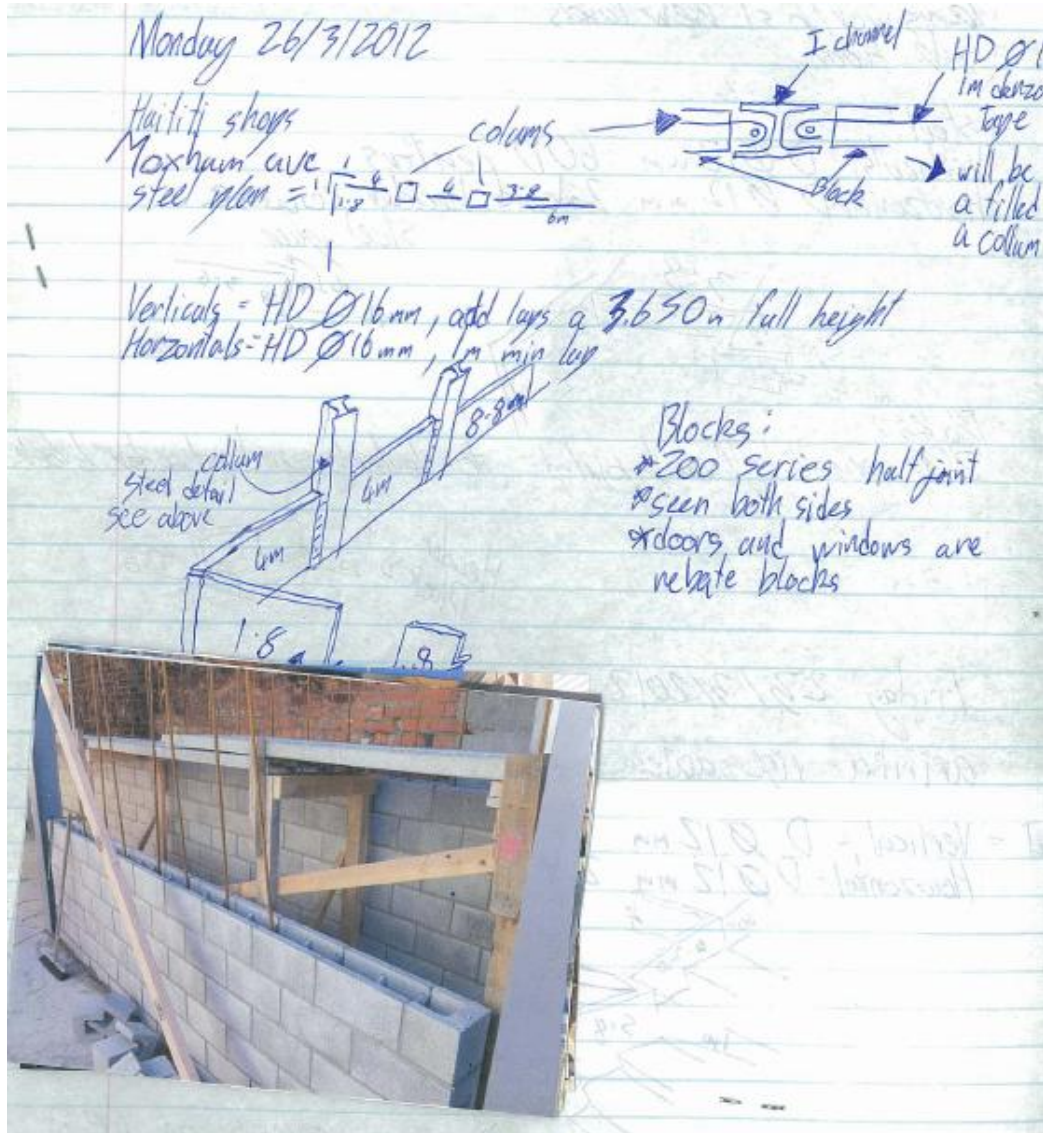 Monday 26/3/2012
Haititi shops
Moxham ave
steel plan =
colums
1.8 4 4 3.8
6m
I channel
HD Ø1
1m
Tape
Block
will be
a filled
a collum
Verticals = HD Ø16mm, add laps a 3.650m full height
Horzontals = HD Ø16mm, 1m min lap
collum
steel detail
see above
4m
4m
8.8m
1.8
.8
Blocks:
*200 series half joint
*seen both sides
*doors and windows are
rebate blocks